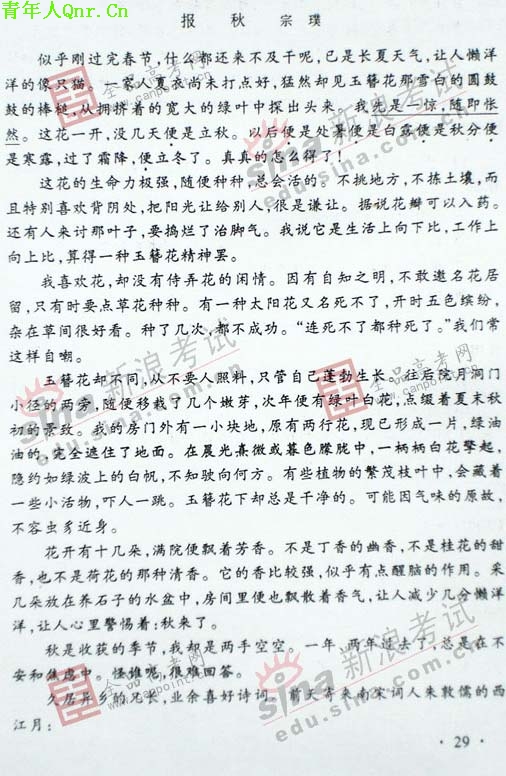 青年人Qnr.Cn
报 秋 宗 璞
似乎刚过完春节,什么都还来不及干呢,已是长夏天气,让人懒洋
洋的像只猫。一家人夏衣尚未打点好,猛然却见玉簪花那雪白的圆鼓
鼓的棒槌,从拥挤着的宽大的绿叶中探出头来。我先是一惊,随即怅
然。这花一开,没几天便是立秋。以后便是处暑便是白露便是秋分便
是寒露,过了霜降,便立冬了。真真的怎么得了!
这花的生命力极强,随便种种,总会活的。不挑地方,不拣土壤,而
且特别喜欢背阴处,把阳光让给别人,很是谦让。据说花瓣可以入药。
还有人来讨那叶子,要捣烂了治脚气。我说它是生活上向下比,工作上
向上比,算得一种玉簪花精神罢。
我喜欢花,却没有侍弄花的闲情。因有自知之明,不敢邀名花居
留,只有时要点草花种种。有一种太阳花又名死不了,开时五色缤纷,
杂在草间很好看。种了几次,都不成功。“连死不了都种死了。”我们常
这样自嘲。
玉簪花却不同,从不要人照料,只管自己蓬勃生长。往后院月洞门
小径的两旁,随便移栽了几个嫩芽,次年便有绿叶白花,点缀着夏末秋
初的景致。我的房门外有一小块地,原有两行花,现已形成一片,绿油
油的,完全遮住了地面。在晨光熹微或暮色朦胧中,一柄柄白花擎起,
隐约如绿波上的白帆,不知驶向何方。有些植物的繁茂枝叶中,会藏着
一些小活物,吓人一跳。玉簪花下却总是干净的。可能因气味的原故,
不容虫豸近身。
花开有十几朵,满院便飘着芳香。不是丁香的幽香,不是桂花的甜
香,也不是荷花的那种清香。它的香比较强,似乎有点醒脑的作用。采
几朵放在养石子的水盆中,房间里便也飘散着香气,让人减少几分懒洋
洋,让人心里警惕着:秋来了。
秋是收获的季节,我却是两手空空。一年,两年过去了,总是在不
安和焦虑中。怪谁呢,很难回答。
久居异乡的兄长,业余喜好诗词。前天寄来南宋词人朱敦儒的西
江月:
· 29 ·
全品高考网
www.canpoint.cn
sina 新浪考试
edu.sina.com.cn
全品高考网
www.canpoint.cn
sina 新浪考试
edu.sina.com.cn
全品高考网
www.canpoint.cn
sina 新浪考试
edu.sina.com.cn